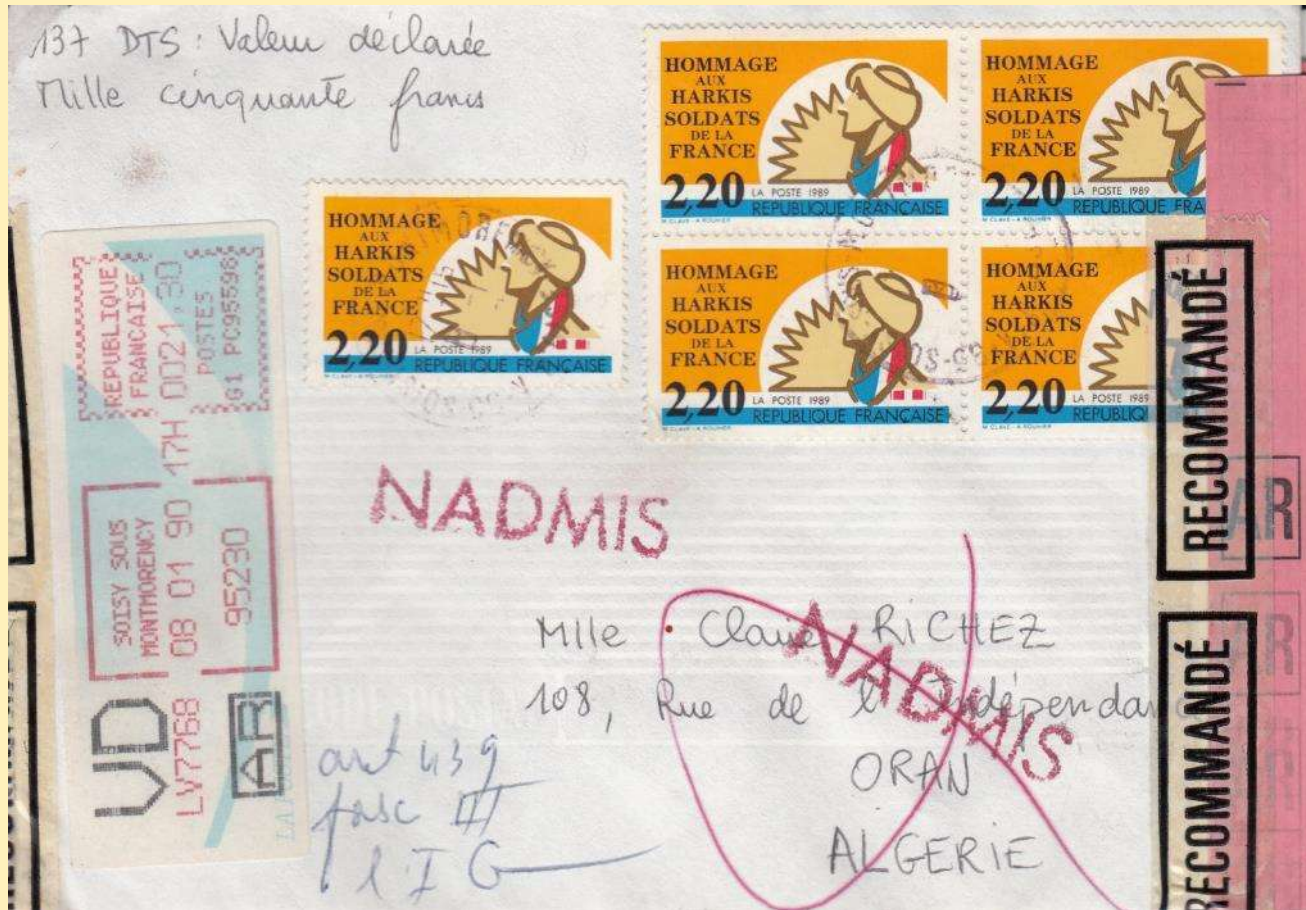 137 DTS : Valeur déclarée
Mille cinquante francs
HOMMAGE
AUX
HARKIS
SOLDATS
DE LA
FRANCE
2,20
LA POSTE 1989
REPUBLIQUE FRANÇAISE
HOMMAGE
AUX
HARKIS
SOLDATS
DE LA
FRANCE
2,20
LA POSTE 1989
REPUBLIQUE FRA
HOMMAGE
AUX
HARKIS
SOLDATS
DE LA
FRANCE
2,20
LA POSTE 1989
REPUBLIQUE FRANÇAISE
HOMMAGE
AUX
HARKIS
SOLDATS
DE LA
FRANCE
2,20
LA POSTE 1989
REPUBLIQUE FRANÇAISE
HOMMAGE
AUX
HARKIS
SOLDATS
DE LA
FRANCE
2,20
LA POSTE 1989
REPUBLI
REPUBLIQUE
FRANCAISE
17H 0021,30
POSTES
G1 PC95598
SOISY SOUS
MONTMORENCY
08 01 90
95230
VD
LV7768
AR
NADMIS
NADMIS
Mlle Claire RICHEZ
108, Rue de l'Indépendan
ORAN
ALGERIE
art 439
fasc III
l I G
RECOMMANDÉ
RECOMMANDÉ
AR
AR
AR